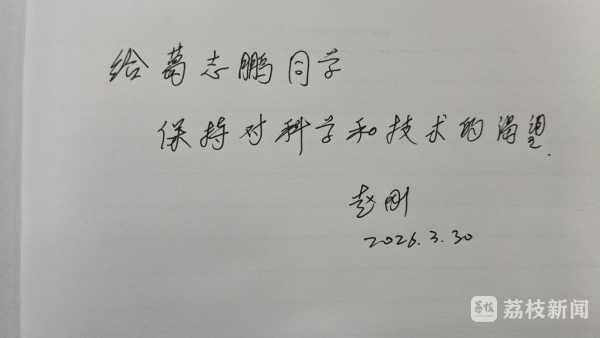 给葛志鹏同学
保持对科学和技术的渴望.
赵刚
2026.3.30
荔枝 荔枝新闻